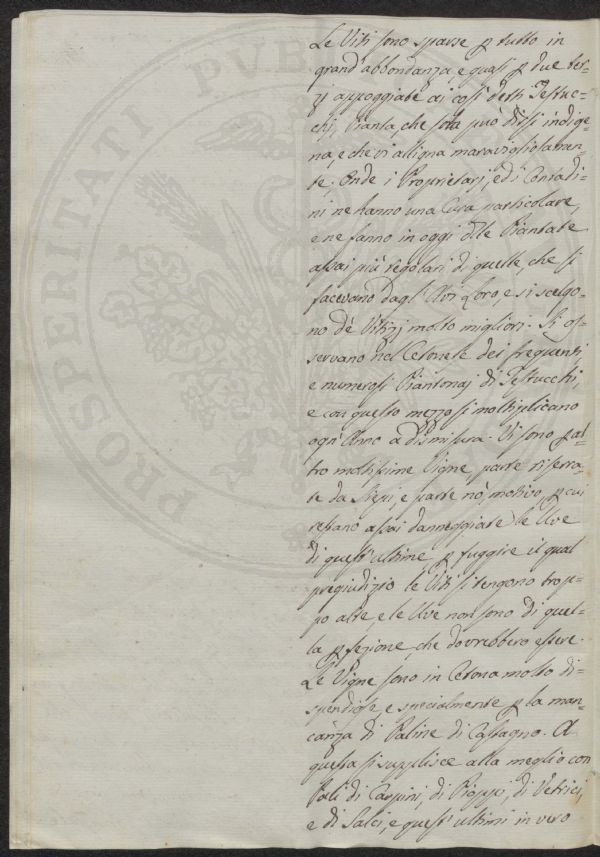 Le Viti sono sparse p tutto in
grand'abbondanza, e quasi p due ter=
zj appoggiate ai così detti Testuc=
chj, Pianta, che sola può dirsi indige=
na, e che vi alligna maravigliosamen=
te; Onde i Proprietarj, ed i Contadi=
ni ne hanno una Cura particolare,
e ne fanno in oggi delle Piantate
assai più regolari di quelle, che si
facevano dagl'Avi Loro, e si scelgo=
no de Vitizj molto migliori. Si os=
servano nel Cetonese dei frequenti,
e numerosi Piantonaj di Testucchi,
e con questo mezzo si moltiplicano
ogn'Anno a dismisura. Vi sono p al=
tro moltissime Vigne parte riserra=
te da Siepi, e parte nò, motivo, p cui
restano assai danneggiate le Uve
di quest'ultime p fuggire il qual
pregiudizio le Viti si tengono trop=
po alte, e le Uve non sono di quel=
la pfezione, che dovrebbero essere.
Le Vigne sono in Cetona molto di=
spendiose, e specialmente p la man=
canza di Paline di Castagno. A
questa si supplisce alla meglio con
Pali di Carpini, di Pioppi, di Vetrici,
e di Salci, e quest'ultimi in vero
PROSPERITATI PUB